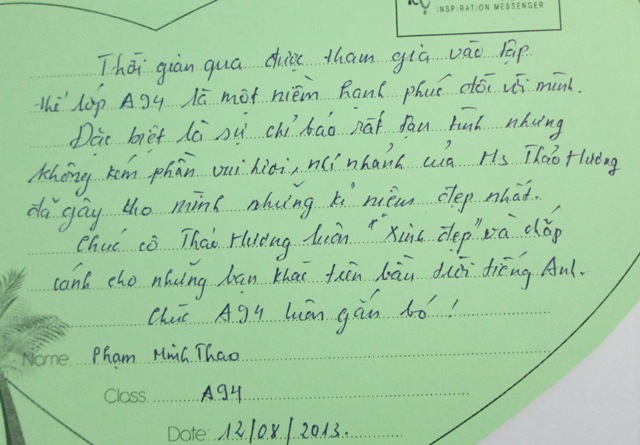 INSPIRATION MESSENGER
Thời gian qua được tham gia vào tập
thể lớp A94 là một niềm hạnh phúc đối với mình.
Đặc biệt là sự chỉ bảo rất tận tình nhưng
không kém phần vui tươi, nhí nhảnh của Ms Thảo Hương
đã gây cho mình những kỉ niệm đẹp nhất.
Chúc cô Thảo Hương luôn "xinh đẹp" và chắp
cánh cho những bạn khác trên bầu trời tiếng Anh.
Chúc A94 luôn gắn bó!
Name Phạm Minh Thao
Class A94
Date: 12/08/2013.